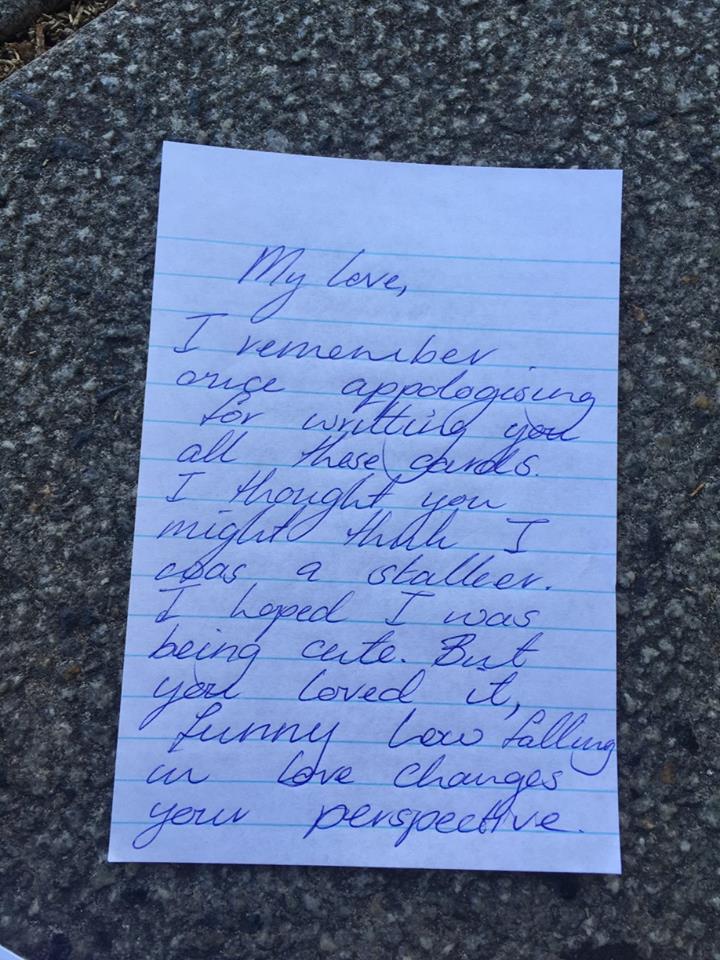 My love,
I remember
once appologising
for writting you
all these cards.
I thought you
might think I
was a stalker.
I hoped I was
being cute. But
you loved it,
funny how falling
in love changes
your perspective.